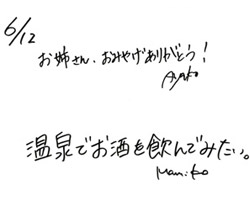 6/12
お姉さん、おみやげありがとう!
Ayako
温泉でお酒を飲んでみたい。
Mariko